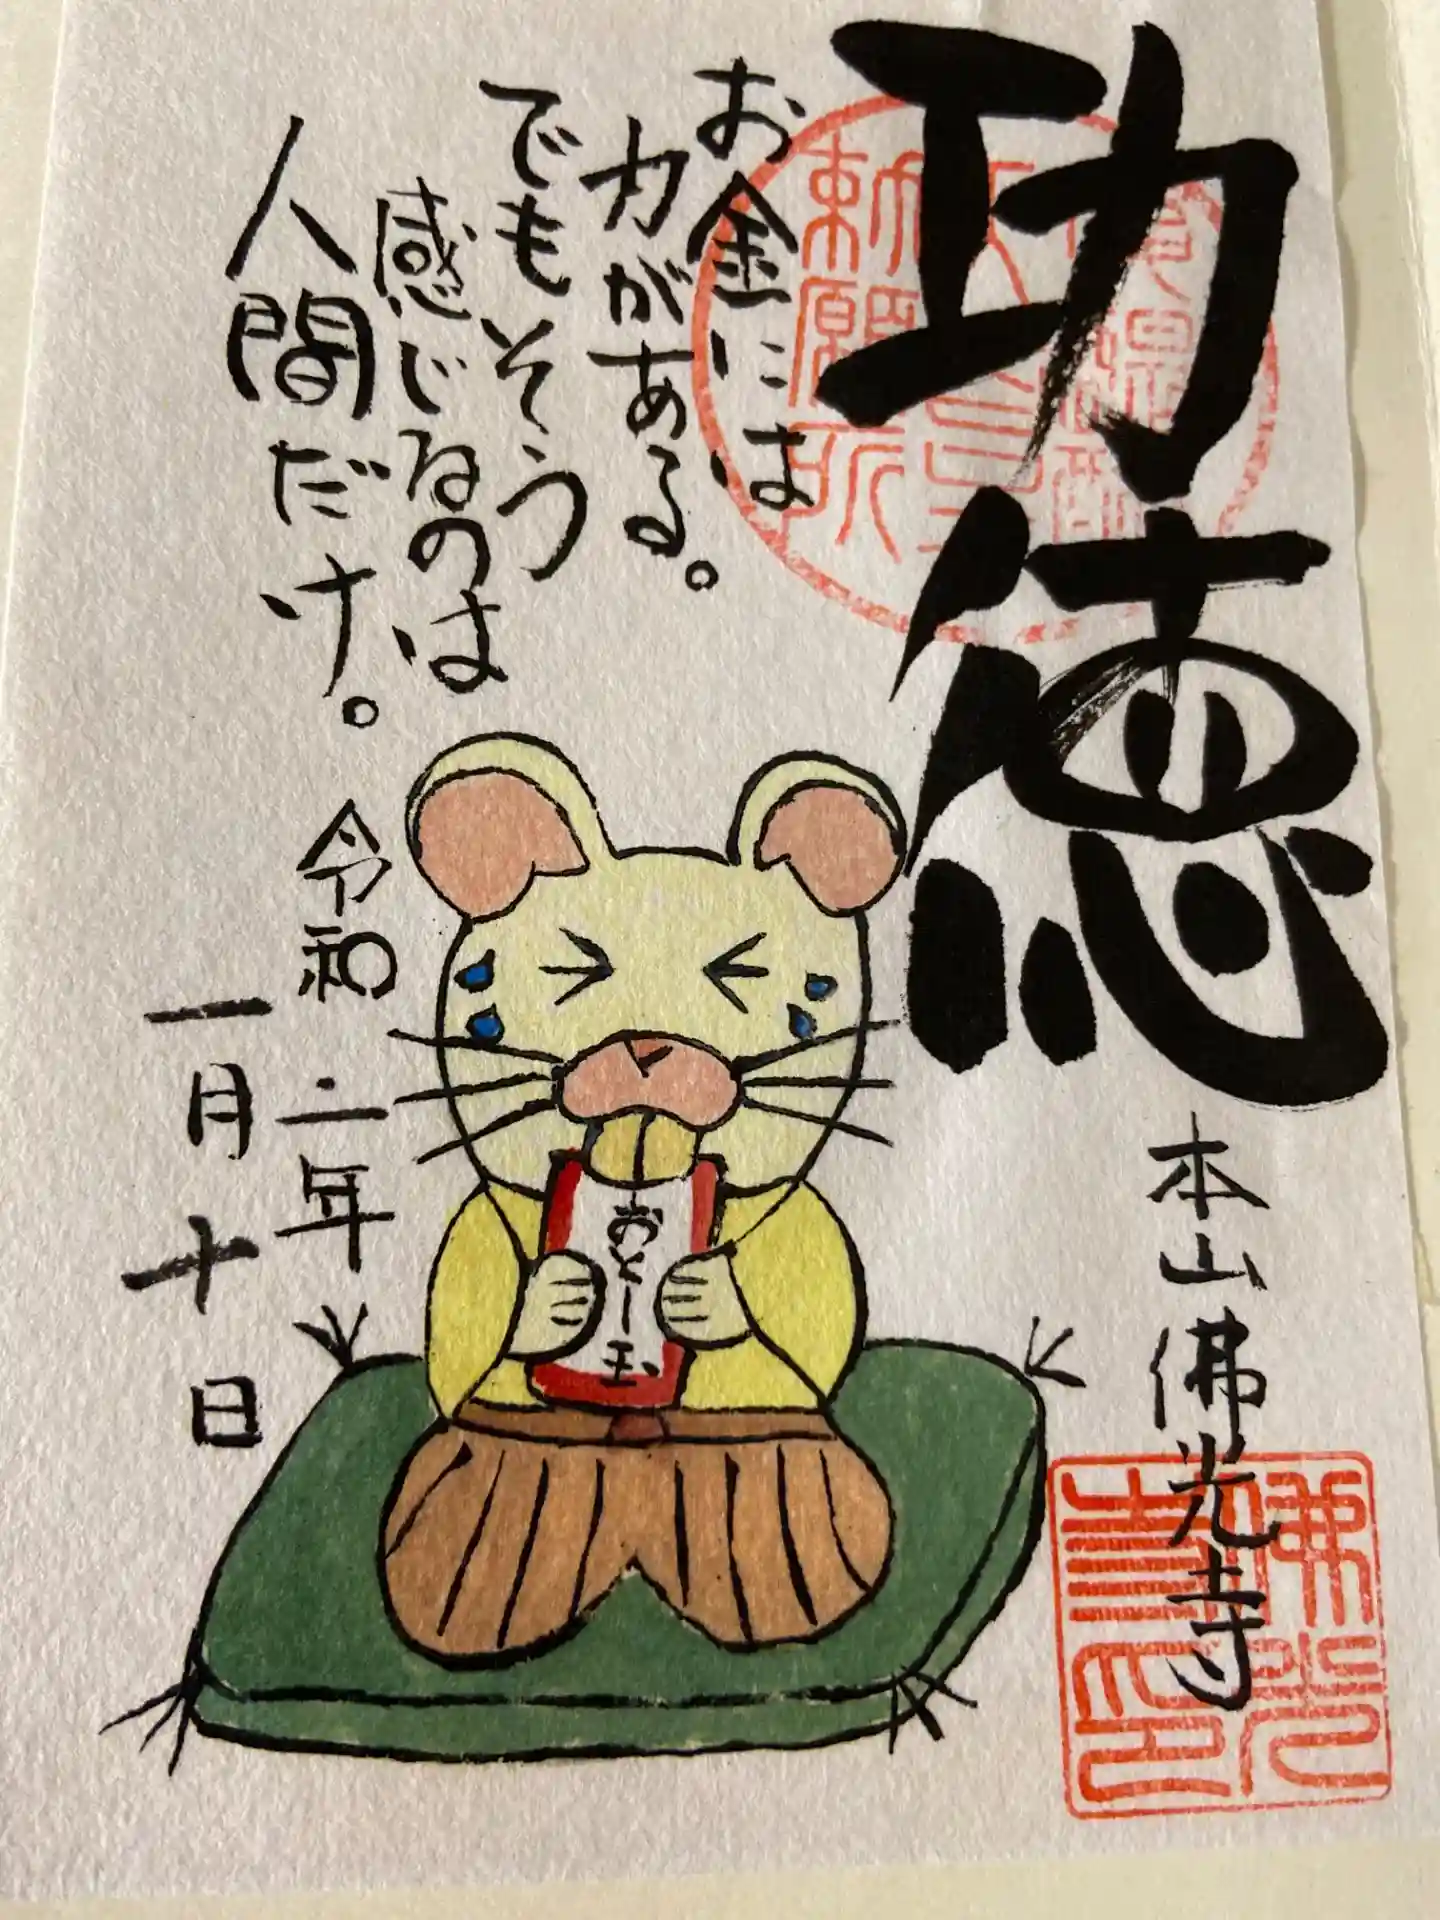 功徳
本山佛光寺
お金には
力がある。
でもそう
感じるのは
人間だけ。
令和二年
一月十日
おとし玉
勅願所
佛光
寺印